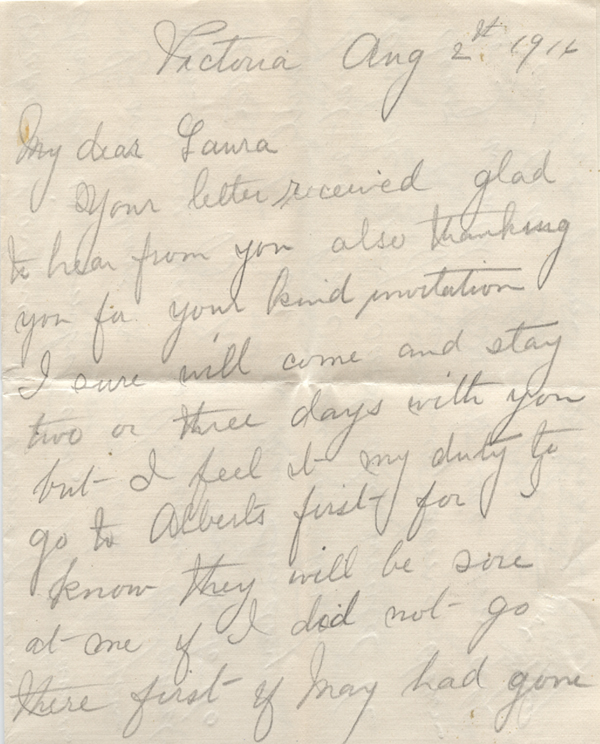 Victoria Aug 2st 1916
My dear Laura
Your letter received glad
to hear from you also thanking
you for your kind invitation
I sure will come and stay
two or three days with you
but I feel it my duty to
go to Alberts first for I
know they will be sore
at me if I did not go
there first if May had gone